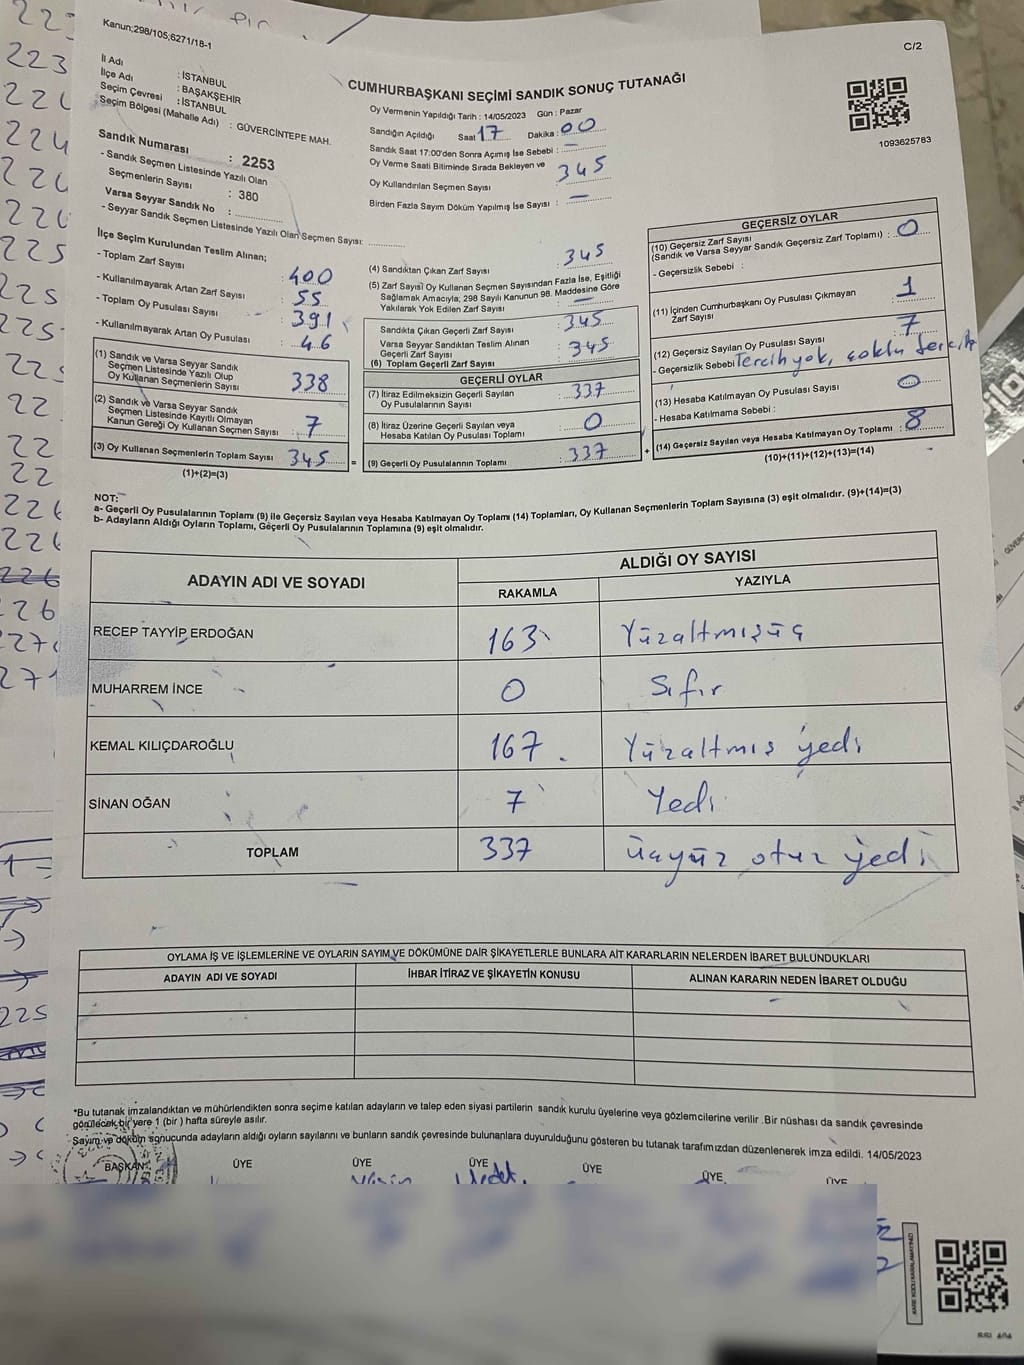 Kanun;298/105;6271/18-1
C/2
İl Adı : İSTANBUL
İlçe Adı : BAŞAKŞEHİR
Seçim Çevresi : İSTANBUL
Seçim Bölgesi (Mahalle Adı) : GÜVERCİNTEPE MAH.
Sandık Numarası : 2253
- Sandık Seçmen Listesinde Yazılı Olan
Seçmenlerin Sayısı : 380
Varsa Seyyar Sandık No :
- Seyyar Sandık Seçmen Listesinde Yazılı Olan Seçmen Sayısı:
CUMHURBAŞKANI SEÇİMİ SANDIK SONUÇ TUTANAĞI
Oy Vermenin Yapıldığı Tarih : 14/05/2023 Gün : Pazar
Sandığın Açıldığı Saat 17 Dakika : 00
Sandık Saat 17:00'den Sonra Açımış İse Sebebi : —
Oy Verme Saati Bitiminde Sırada Bekleyen ve
Oy Kullandırılan Seçmen Sayısı 345
Birden Fazla Sayım Döküm Yapılmış İse Sayısı : —
1093625783
İlçe Seçim Kurulundan Teslim Alınan;
- Toplam Zarf Sayısı : 400
- Kullanılmayarak Artan Zarf Sayısı : 55
- Toplam Oy Pusulası Sayısı : 391
- Kullanılmayarak Artan Oy Pusulası : 46
(1) Sandık ve Varsa Seyyar Sandık
Seçmen Listesinde Yazılı Olup
Oy Kullanan Seçmenlerin Sayısı : 338
(2) Sandık ve Varsa Seyyar Sandık
Seçmen Listesinde Kayıtlı Olmayan
Kanun Gereği Oy Kullanan Seçmen Sayısı : 7
(3) Oy Kullanan Seçmenlerin Toplam Sayısı : 345
(1)+(2)=(3)
(4) Sandıktan Çıkan Zarf Sayısı : 345
(5) Zarf Sayısı Oy Kullanan Seçmen Sayısından Fazla İse, Eşitliği
Sağlamak Amacıyla; 298 Sayılı Kanunun 98. Maddesine Göre
Yakılarak Yok Edilen Zarf Sayısı : —
Sandıkta Çıkan Geçerli Zarf Sayısı : 345
Varsa Seyyar Sandıktan Teslim Alınan
Geçerli Zarf Sayısı
(6) Toplam Geçerli Zarf Sayısı : 345
GEÇERLİ OYLAR
(7) İtiraz Edilmeksizin Geçerli Sayılan
Oy Pusulalarının Sayısı : 337
(8) İtiraz Üzerine Geçerli Sayılan veya
Hesaba Katılan Oy Pusulası Toplamı : 0
= (9) Geçerli Oy Pusulalarının Toplamı : 337
GEÇERSİZ OYLAR
(10) Geçersiz Zarf Sayısı
(Sandık ve Varsa Seyyar Sandık Geçersiz Zarf Toplamı) : 0
- Geçersizlik Sebebi :
(11) İçinden Cumhurbaşkanı Oy Pusulası Çıkmayan
Zarf Sayısı : 1
(12) Geçersiz Sayılan Oy Pusulası Sayısı : 7
- Geçersizlik Sebebi Tercih yok, çoklu tercih
(13) Hesaba Katılmayan Oy Pusulası Sayısı : 0
- Hesaba Katılmama Sebebi :
+ (14) Geçersiz Sayılan veya Hesaba Katılmayan Oy Toplamı : 8
(10)+(11)+(12)+(13)=(14)
NOT:
a- Geçerli Oy Pusulalarının Toplamı (9) ile Geçersiz Sayılan veya Hesaba Katılmayan Oy Toplamı (14) Toplamları, Oy Kullanan Seçmenlerin Toplam Sayısına (3) eşit olmalıdır. (9)+(14)=(3)
b- Adayların Aldığı Oyların Toplamı, Geçerli Oy Pusulalarının Toplamına (9) eşit olmalıdır.
ADAYIN ADI VE SOYADI ALDIĞI OY SAYISI
RAKAMLA YAZIYLA
RECEP TAYYİP ERDOĞAN 163 Yüzaltmışüç
MUHARREM İNCE 0 Sıfır
KEMAL KILIÇDAROĞLU 167 Yüzaltmış yedi
SİNAN OĞAN 7 Yedi
TOPLAM 337 üçyüz otuz yedi
OYLAMA İŞ VE İŞLEMLERİNE VE OYLARIN SAYIM VE DÖKÜMÜNE DAİR ŞİKAYETLERLE BUNLARA AİT KARARLARIN NELERDEN İBARET BULUNDUKLARI
ADAYIN ADI VE SOYADI İHBAR İTİRAZ VE ŞİKAYETİN KONUSU ALINAN KARARIN NEDEN İBARET OLDUĞU
*Bu tutanak imzalandıktan ve mühürlendikten sonra seçime katılan adayların ve talep eden siyasi partilerin sandık kurulu üyelerine veya gözlemcilerine verilir .Bir nüshası da sandık çevresinde
görülecek bir yere 1 (bir ) hafta süreyle asılır.
Sayım ve döküm sonucunda adayların aldığı oyların sayılarını ve bunların sandık çevresinde bulunanlara duyurulduğunu gösteren bu tutanak tarafımızdan düzenlenerek imza edildi. 14/05/2023
BAŞKAN ÜYE ÜYE ÜYE ÜYE ÜYE ÜYE